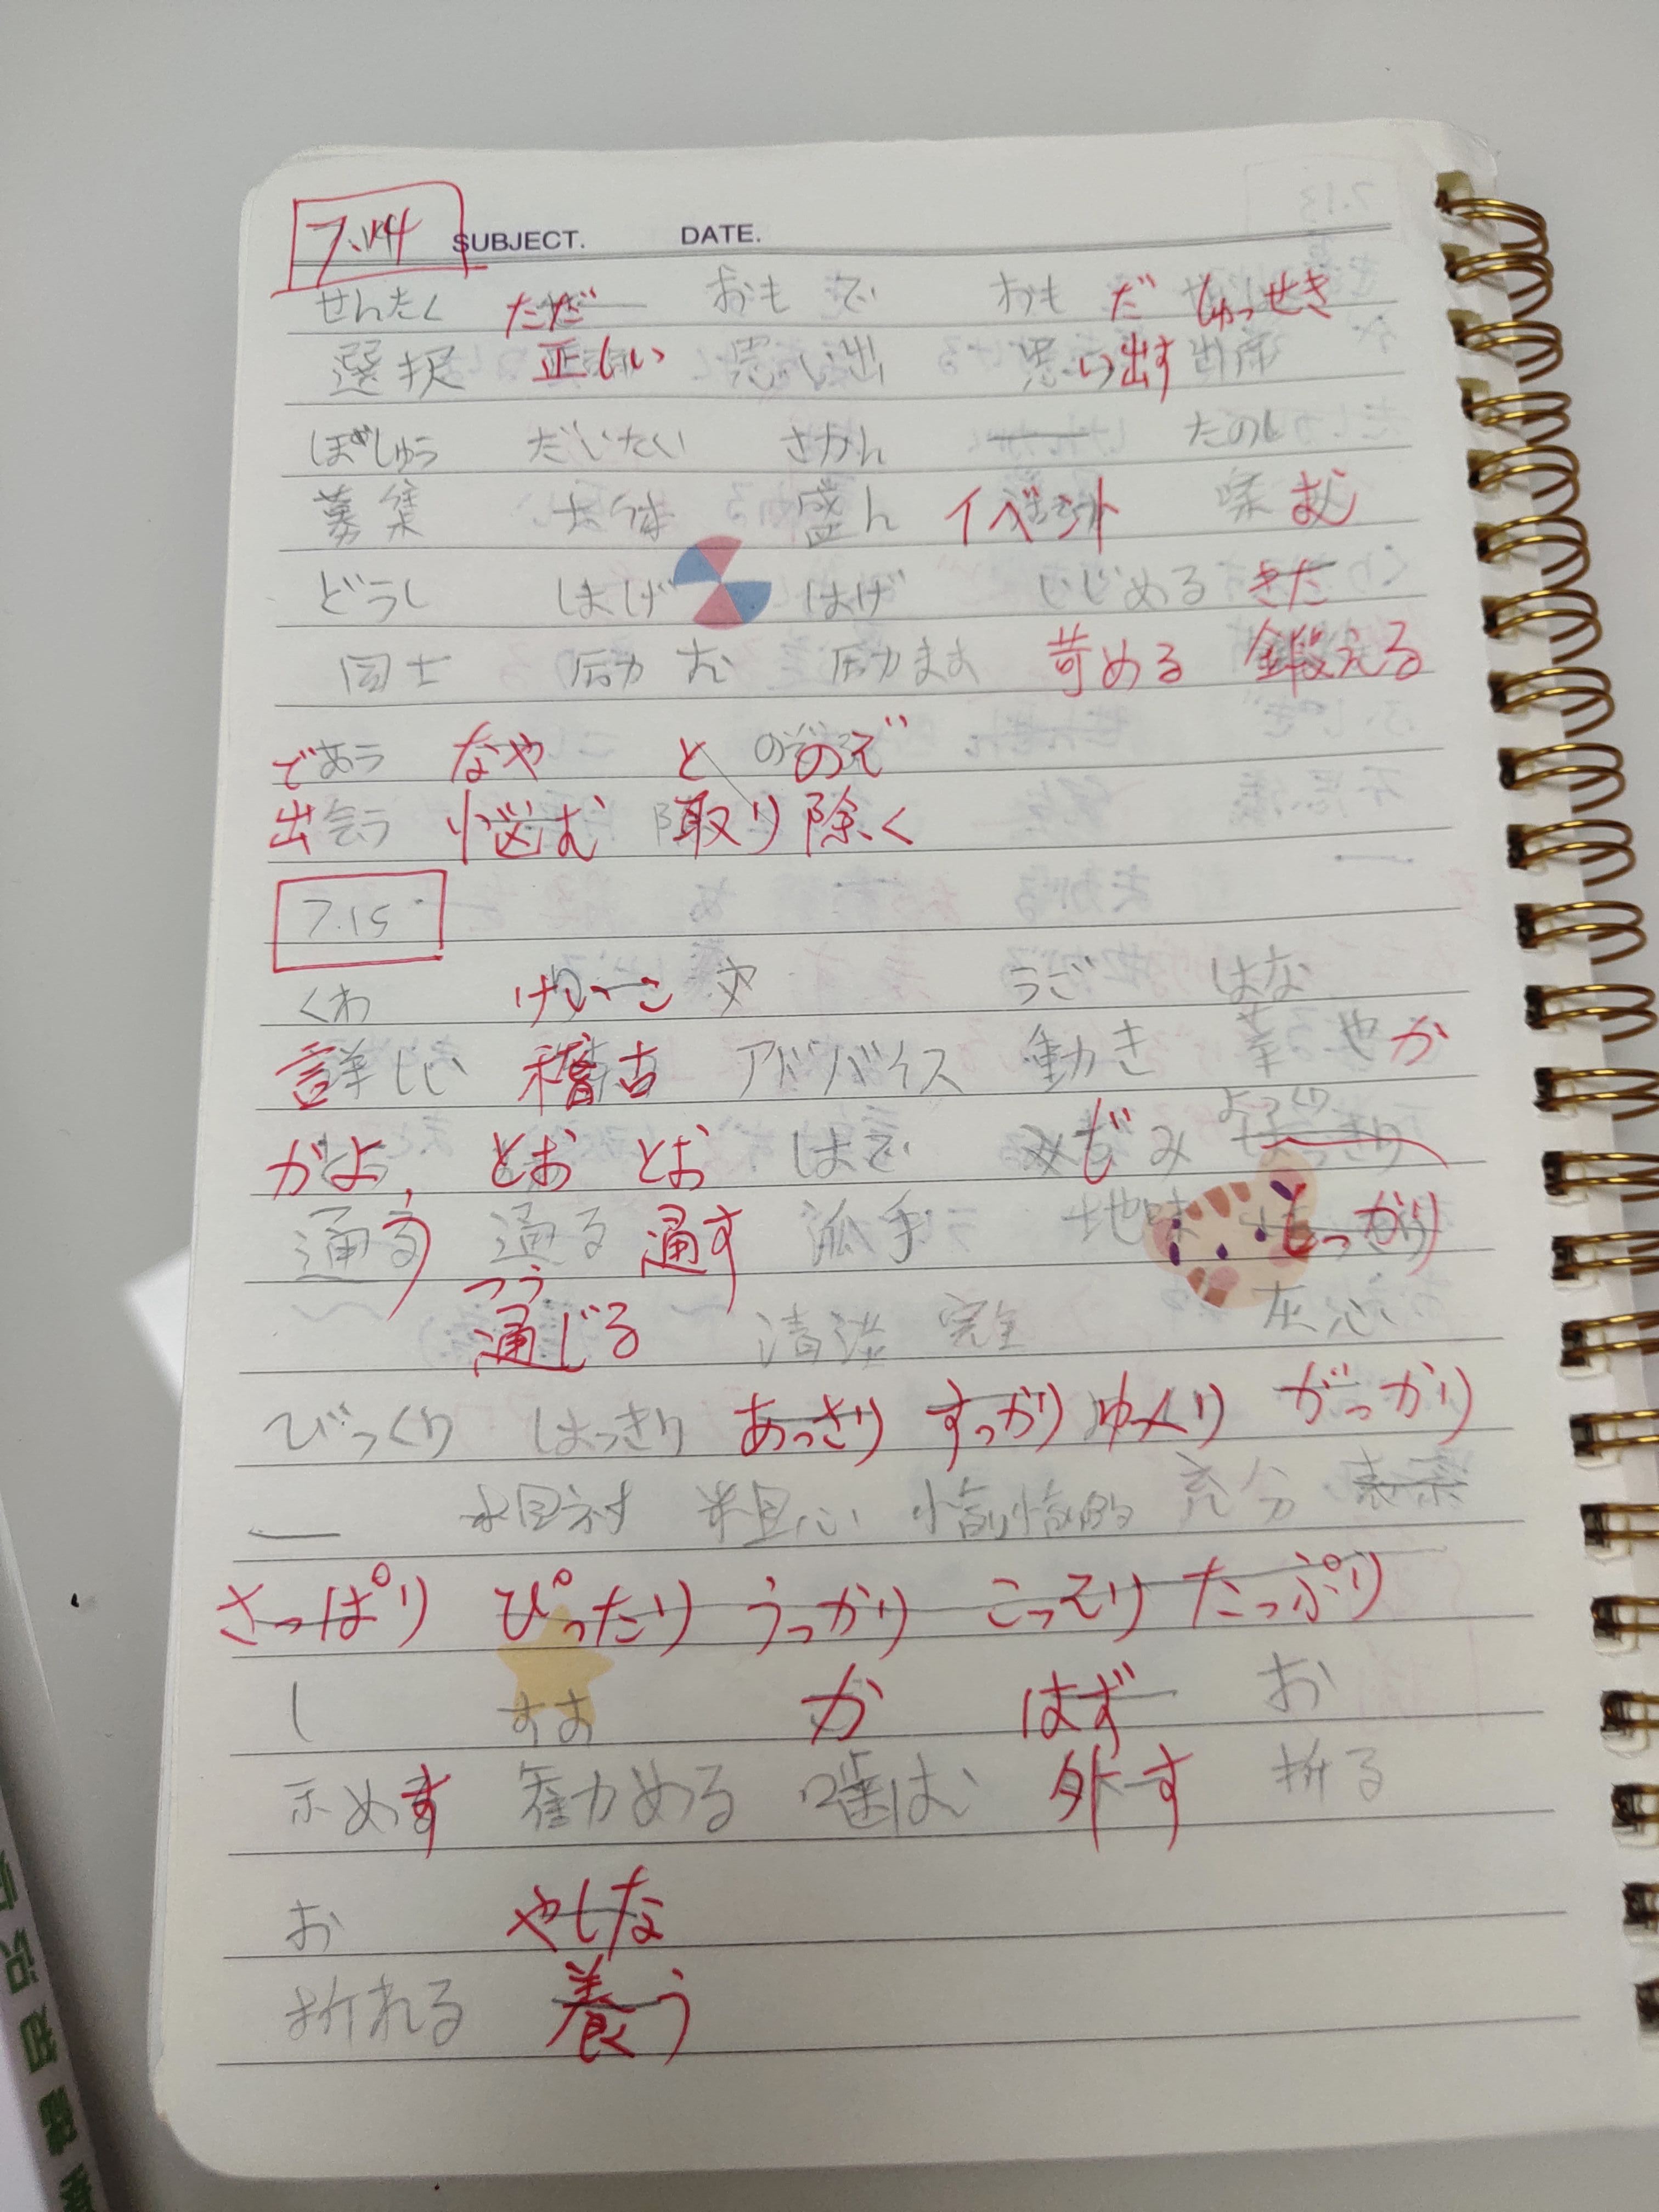 7.14 SUBJECT. DATE.
せんたく ただ おも で おも だ しゅっせき
選択 正しい 思い出 思い出す 出席
ぼしゅう だいたい さかん たのし
募集 大体 盛ん イベント 楽む
どうし はげ はげ いじめる きた
同士 励む 励ます 苛める 鍛える
であう なや と のぞ
出会う 悩む 取り除く
7.15
くわ けいこ うご はな
詳しい 稽古 アドバイス 動き 華やか
かよ とお とお はで みじみ
通う 通る 通す 派手 地味 しっかり
つう
通じる 清淡 完全 灰心
びっくり はっきり あっさり すっかり ゆっくり がっかり
粗心 充分 表示
さっぱり ぴったり うっかり こっそり たっぷり
し すす か はず お
示めす 勧める 噛む 外す 折る
お やしな
折れる 養う